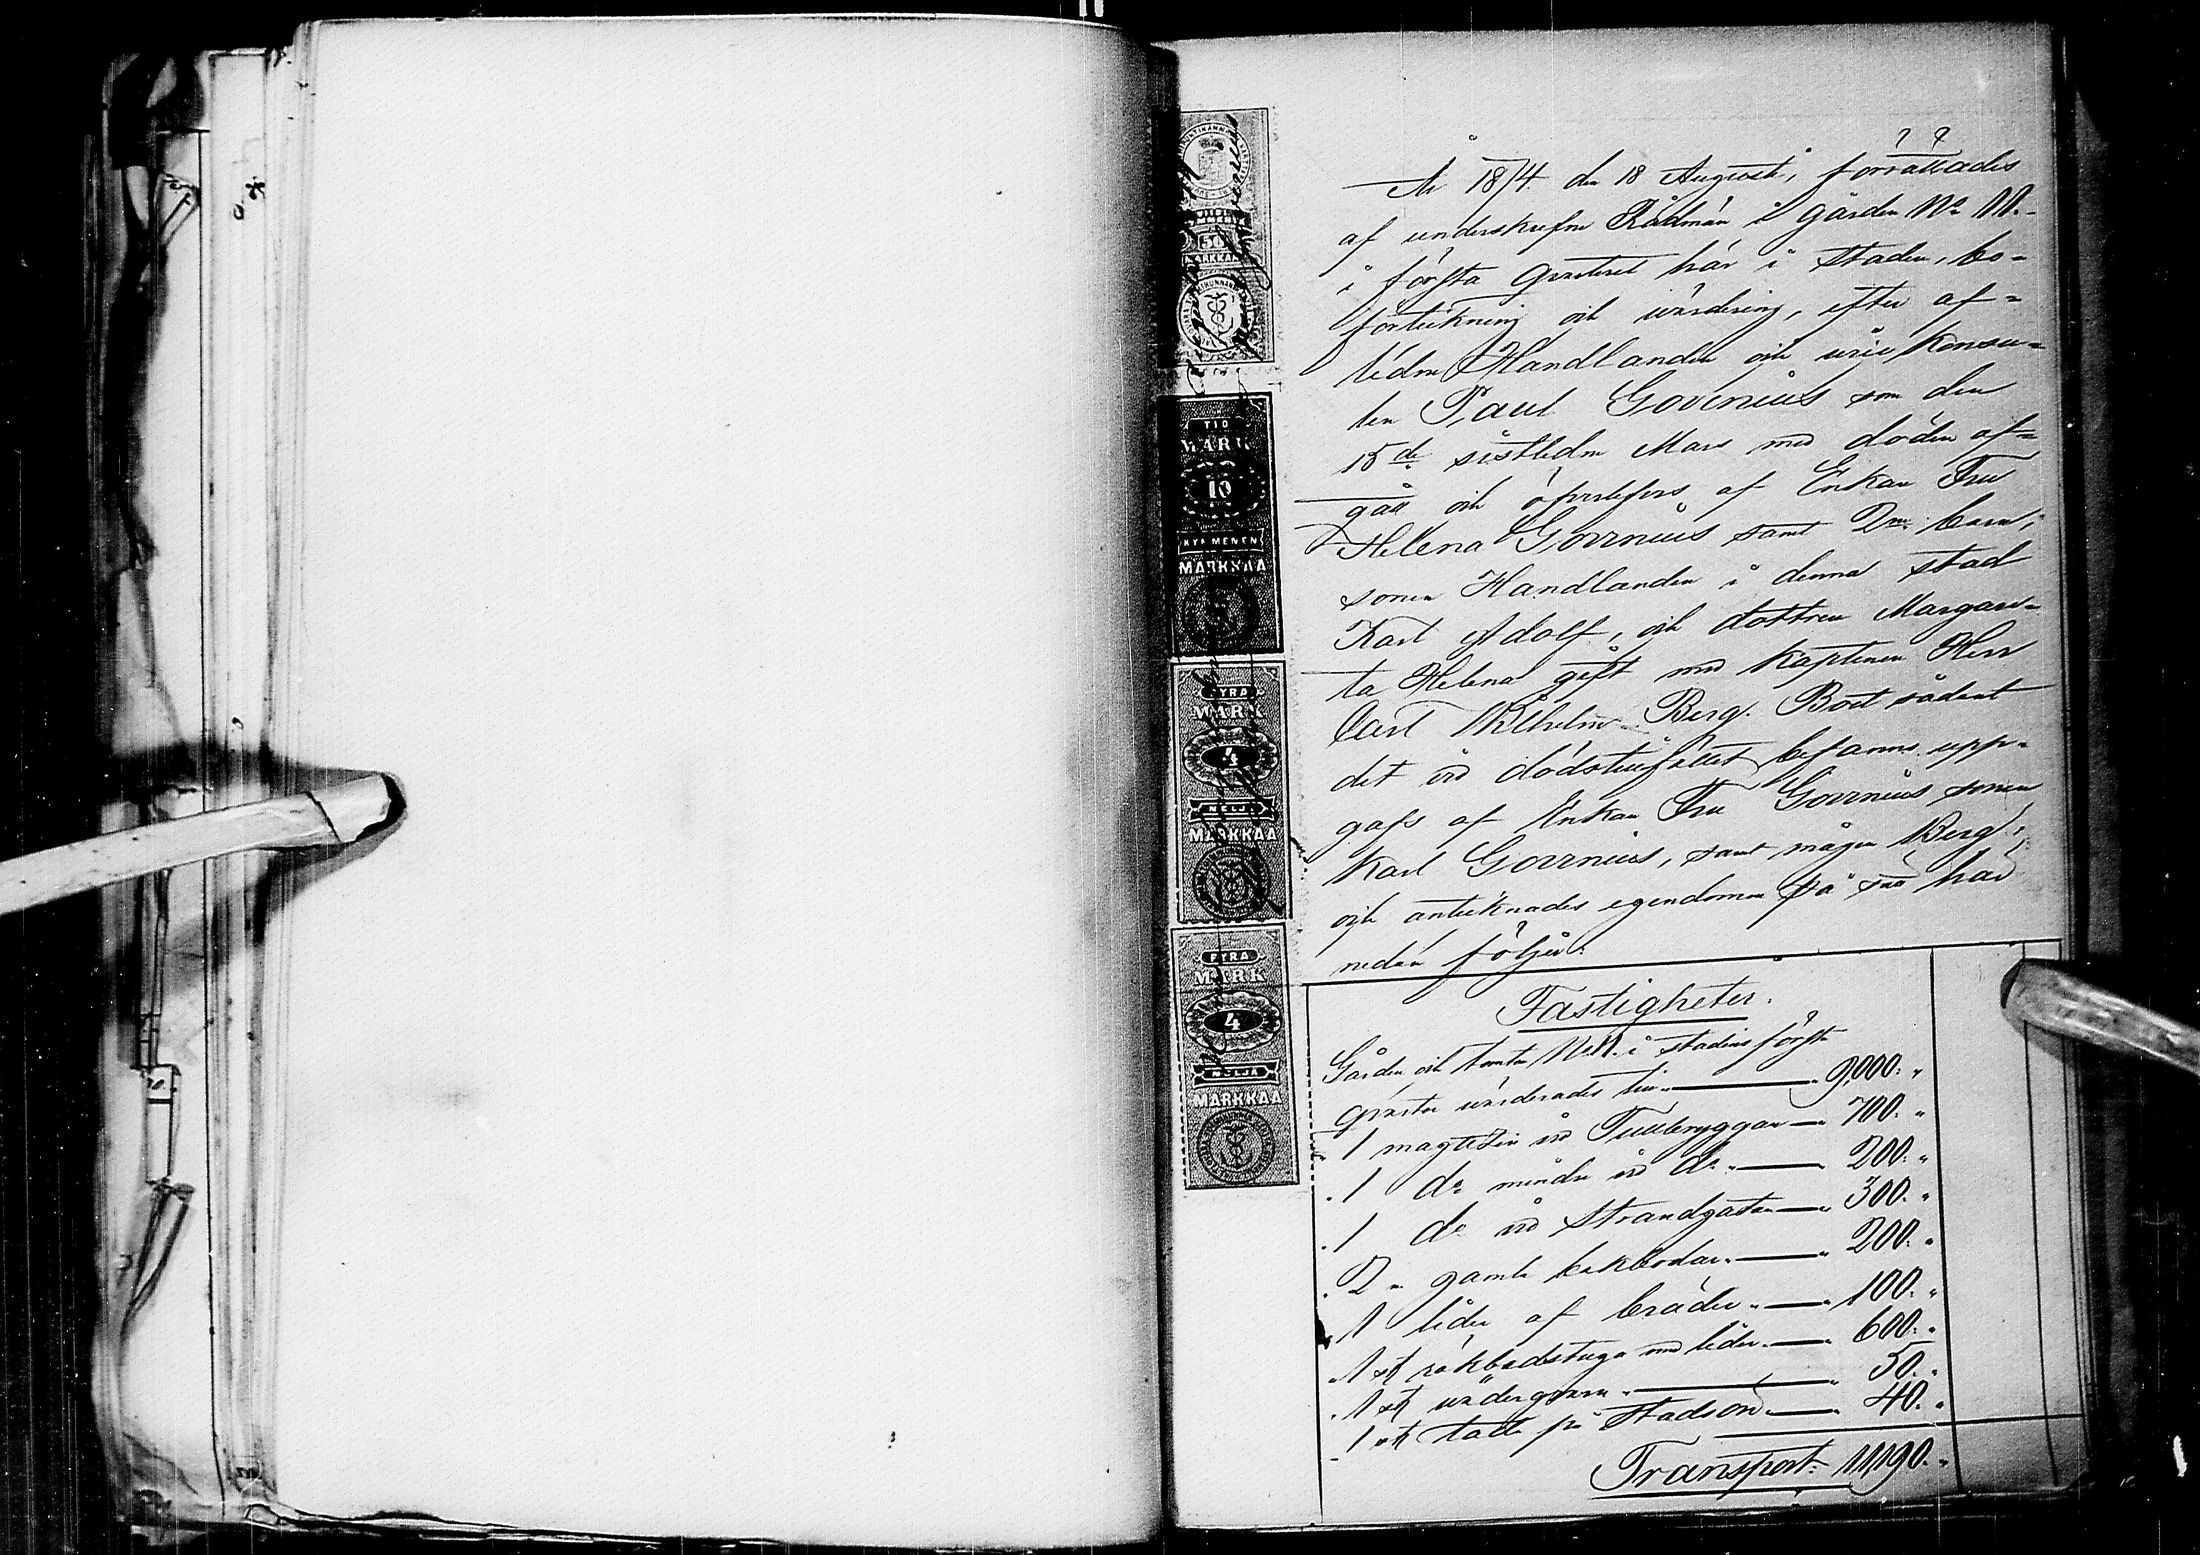 År 1874 den 18 Augusti, förrättades
af underskrifne Rådman i gården No 11.
i första qvarteret här i staden, bo-
uppteckning och värdering, efter af-
lidne Handlanden och vice Konsu-
len Paul Govenius som den
15de sistledne Mars med döden af-
gått och öfverlefves af Enkan Fru
Helena Govenius samt 2ne barn,
sonen Handlanden i denna stad
Karl Adolf, och dottren Margare-
ta Helena gift med Kaptenen Herr
Carl Wilhelm Berg. Boet sådant
det vid dödstillfället befanns upp-
gafs af Enkan Fru Govenius sonen
Karl Govenius, samt mågen Berg,
och antecknades egendomen på sätt här
nedan följer:
Fastigheter.
Gården och tomten No 11. i stadens första
qvarter värderades till 9,000. "
1 magazin vid Tullbryggan 700. "
1 do mindre vid do 200. "
1 do vid Strandgatan 300. "
2 gamla bodar 200. "
1 lider af bräder 100. "
1 st rökbadstuga med lider 600. "
1 st väderqvarn 50. "
1 st på Stadsön 40. "
Transport: 11,190. "
TIO
MARK
10
KYMMENEN
MARKKAA
FYRA
MARK
4
NELJÄ
MARKKAA
FYRA
MARK
4
NELJÄ
MARKKAA